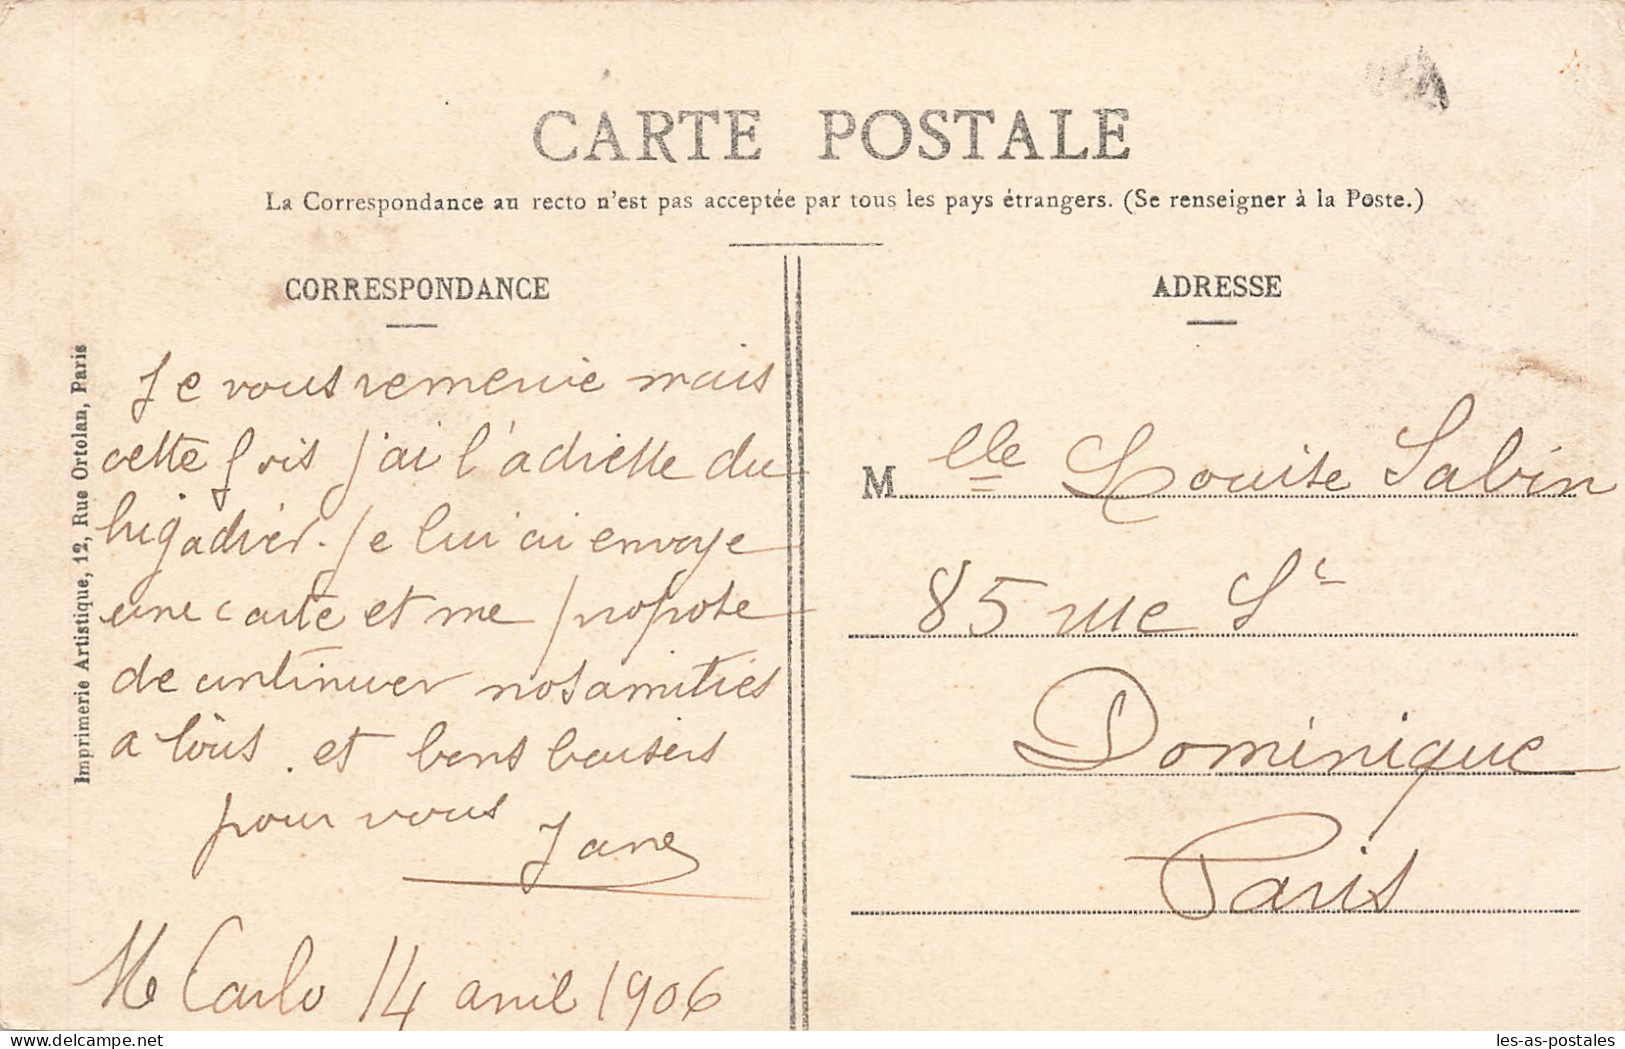 CARTE POSTALE
La Correspondance au recto n'est pas acceptée par tous les pays étrangers. (Se renseigner à la Poste.)
CORRESPONDANCE
Je vous remercie mais
cette fois j'ai l'adresse du
brigadier. Je lui ai envoye
une carte et me propose
de continuer nos amitiés
a tous. et bons baisers
pour vous Jane
Mte Carlo 14 avril 1906
Imprimerie Artistique, 12, Rue Ortolan, Paris
ADRESSE
Mlle Louise Sabin
85 rue St
Dominique
Paris
delcampe.net
les-as-postales